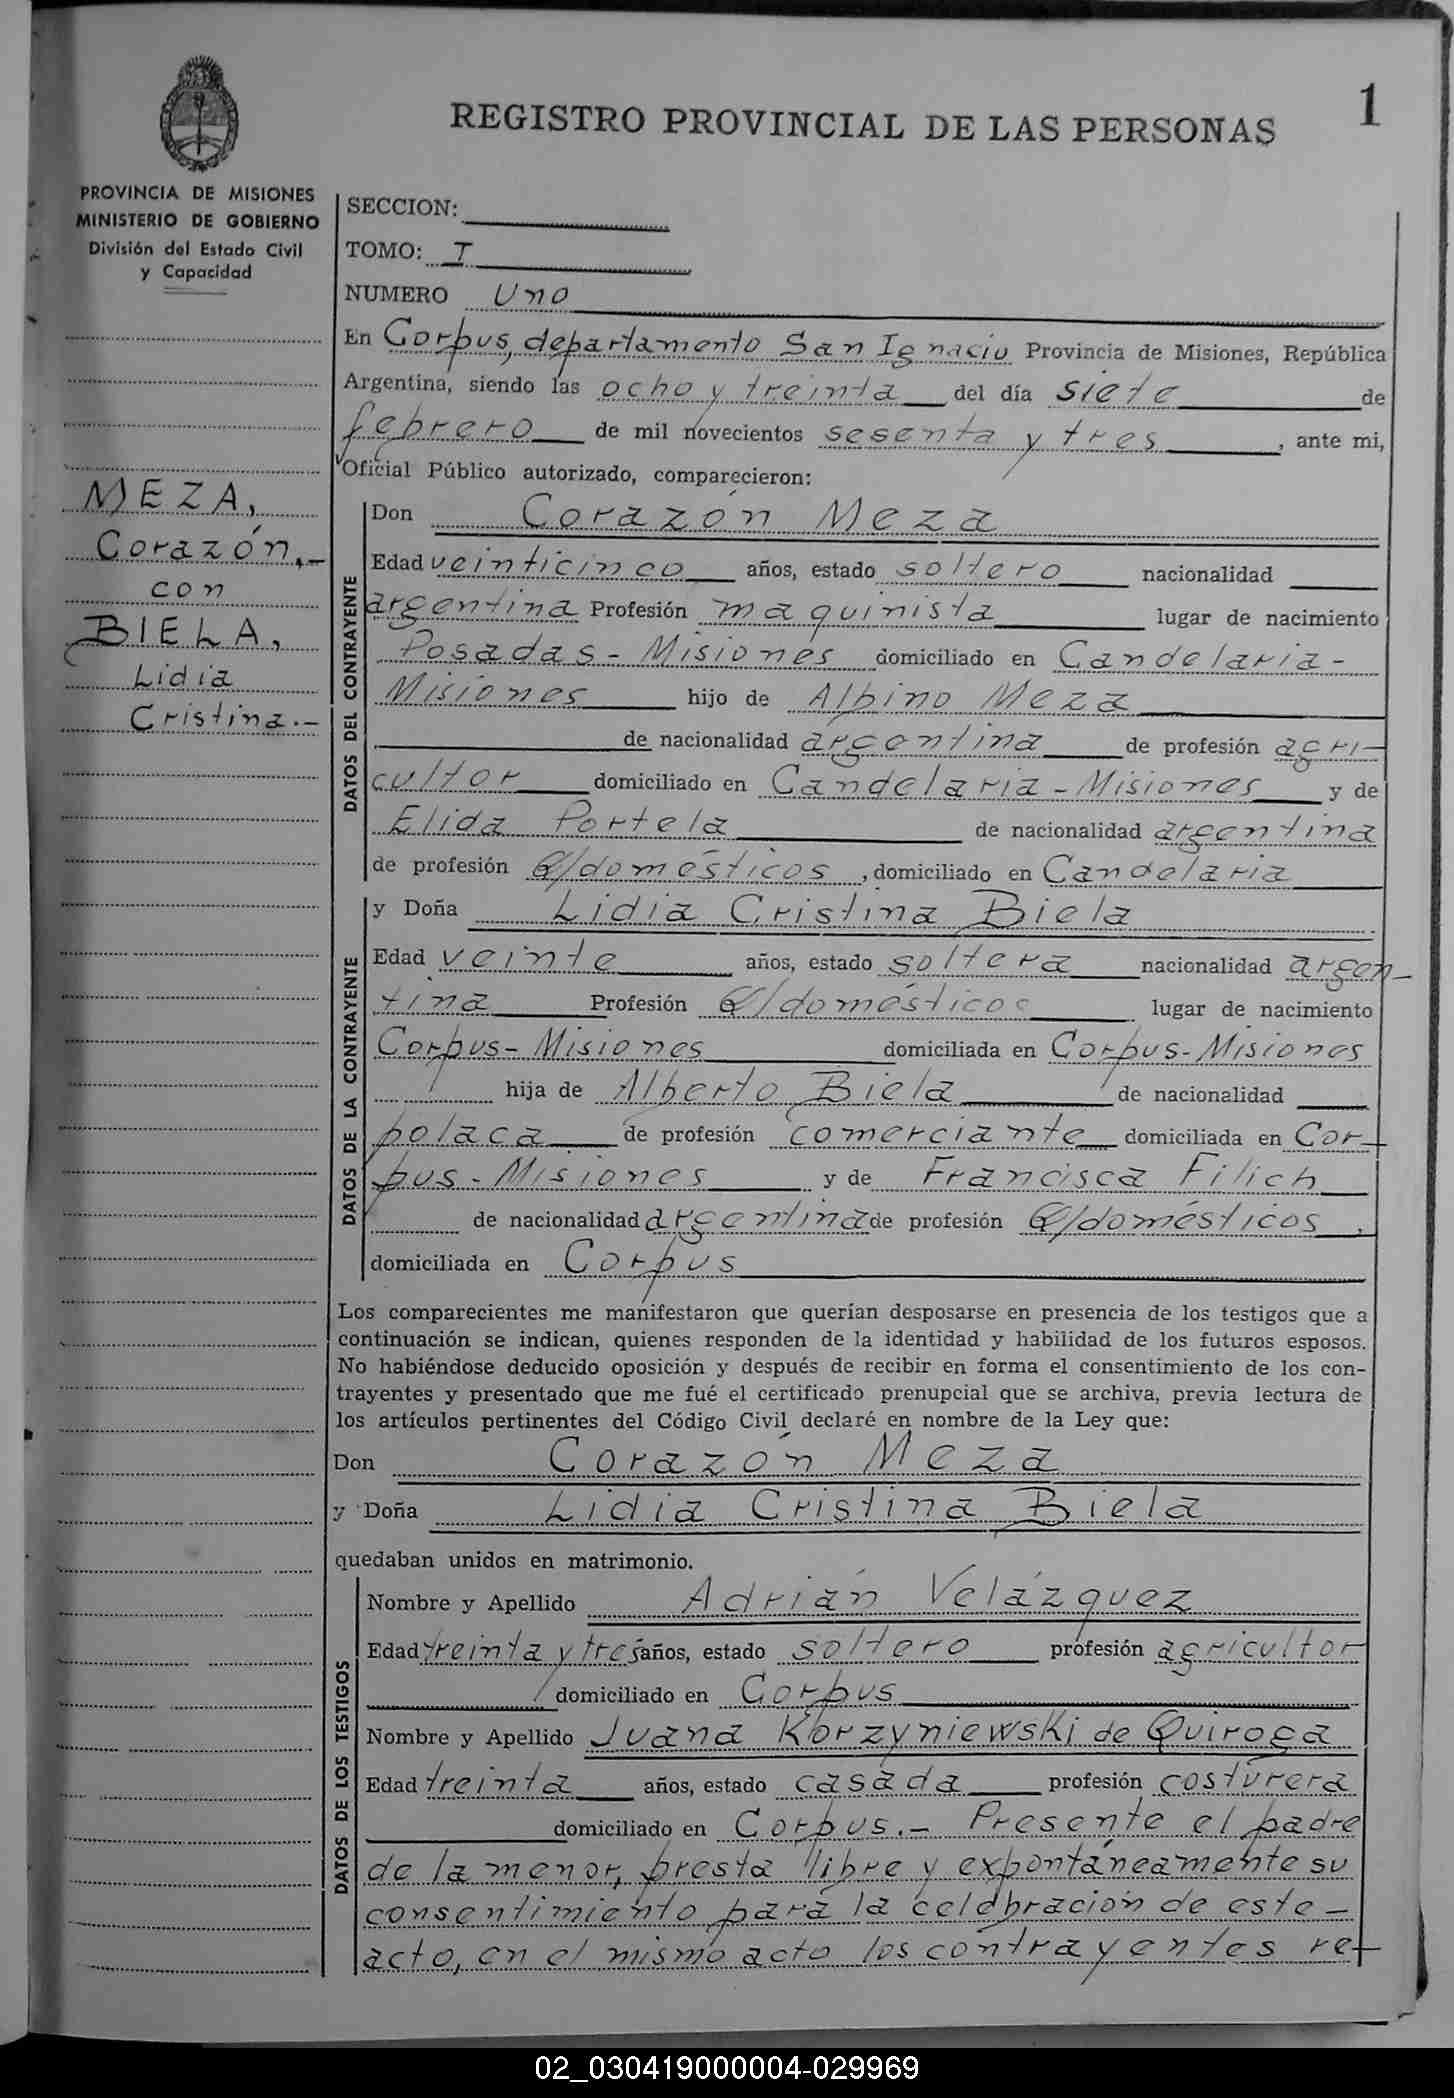 REGISTRO PROVINCIAL DE LAS PERSONAS
1
PROVINCIA DE MISIONES
MINISTERIO DE GOBIERNO
División del Estado Civil
y Capacidad
MEZA,
Corazón.-
con
BIELA,
Lidia
Cristina.-
SECCION:
TOMO: I
NUMERO Uno
En Corpus, departamento San Ignacio Provincia de Misiones, República
Argentina, siendo las ocho y treinta del día siete de
febrero de mil novecientos sesenta y tres, ante mi,
Oficial Público autorizado, comparecieron:
DATOS DEL CONTRAYENTE
Don Corazón Meza
Edad veinticinco años, estado soltero nacionalidad
argentina Profesión maquinista lugar de nacimiento
Posadas - Misiones domiciliado en Candelaria -
Misiones hijo de Albino Meza
de nacionalidad argentina de profesión agri-
cultor domiciliado en Candelaria - Misiones y de
Elida Portela de nacionalidad argentina
de profesión Q/domésticos, domiciliado en Candelaria
DATOS DE LA CONTRAYENTE
y Doña Lidia Cristina Biela
Edad veinte años, estado soltera nacionalidad argen-
tina Profesión Q/domésticos lugar de nacimiento
Corpus - Misiones domiciliada en Corpus - Misiones
hija de Alberto Biela de nacionalidad
polaca de profesión comerciante domiciliada en Cor-
pus - Misiones y de Francisca Filich
de nacionalidad argentina de profesión Q/domésticos,
domiciliada en Corpus
Los comparecientes me manifestaron que querían desposarse en presencia de los testigos que a
continuación se indican, quienes responden de la identidad y habilidad de los futuros esposos.
No habiéndose deducido oposición y después de recibir en forma el consentimiento de los con-
trayentes y presentado que me fué el certificado prenupcial que se archiva, previa lectura de
los artículos pertinentes del Código Civil declaré en nombre de la Ley que:
Don Corazón Meza
y Doña Lidia Cristina Biela
quedaban unidos en matrimonio.
DATOS DE LOS TESTIGOS
Nombre y Apellido Adrián Velázquez
Edad treinta y tres años, estado soltero profesión agricultor
domiciliado en Corpus
Nombre y Apellido Juana Korzyniewski de Quiroga
Edad treinta años, estado casada profesión costurera
domiciliado en Corpus.- Presente el padre
de la menor, presta libre y expontáneamente su
consentimiento para la celebración de este -
acto, en el mismo acto los contrayentes re-
02_030419000004-029969